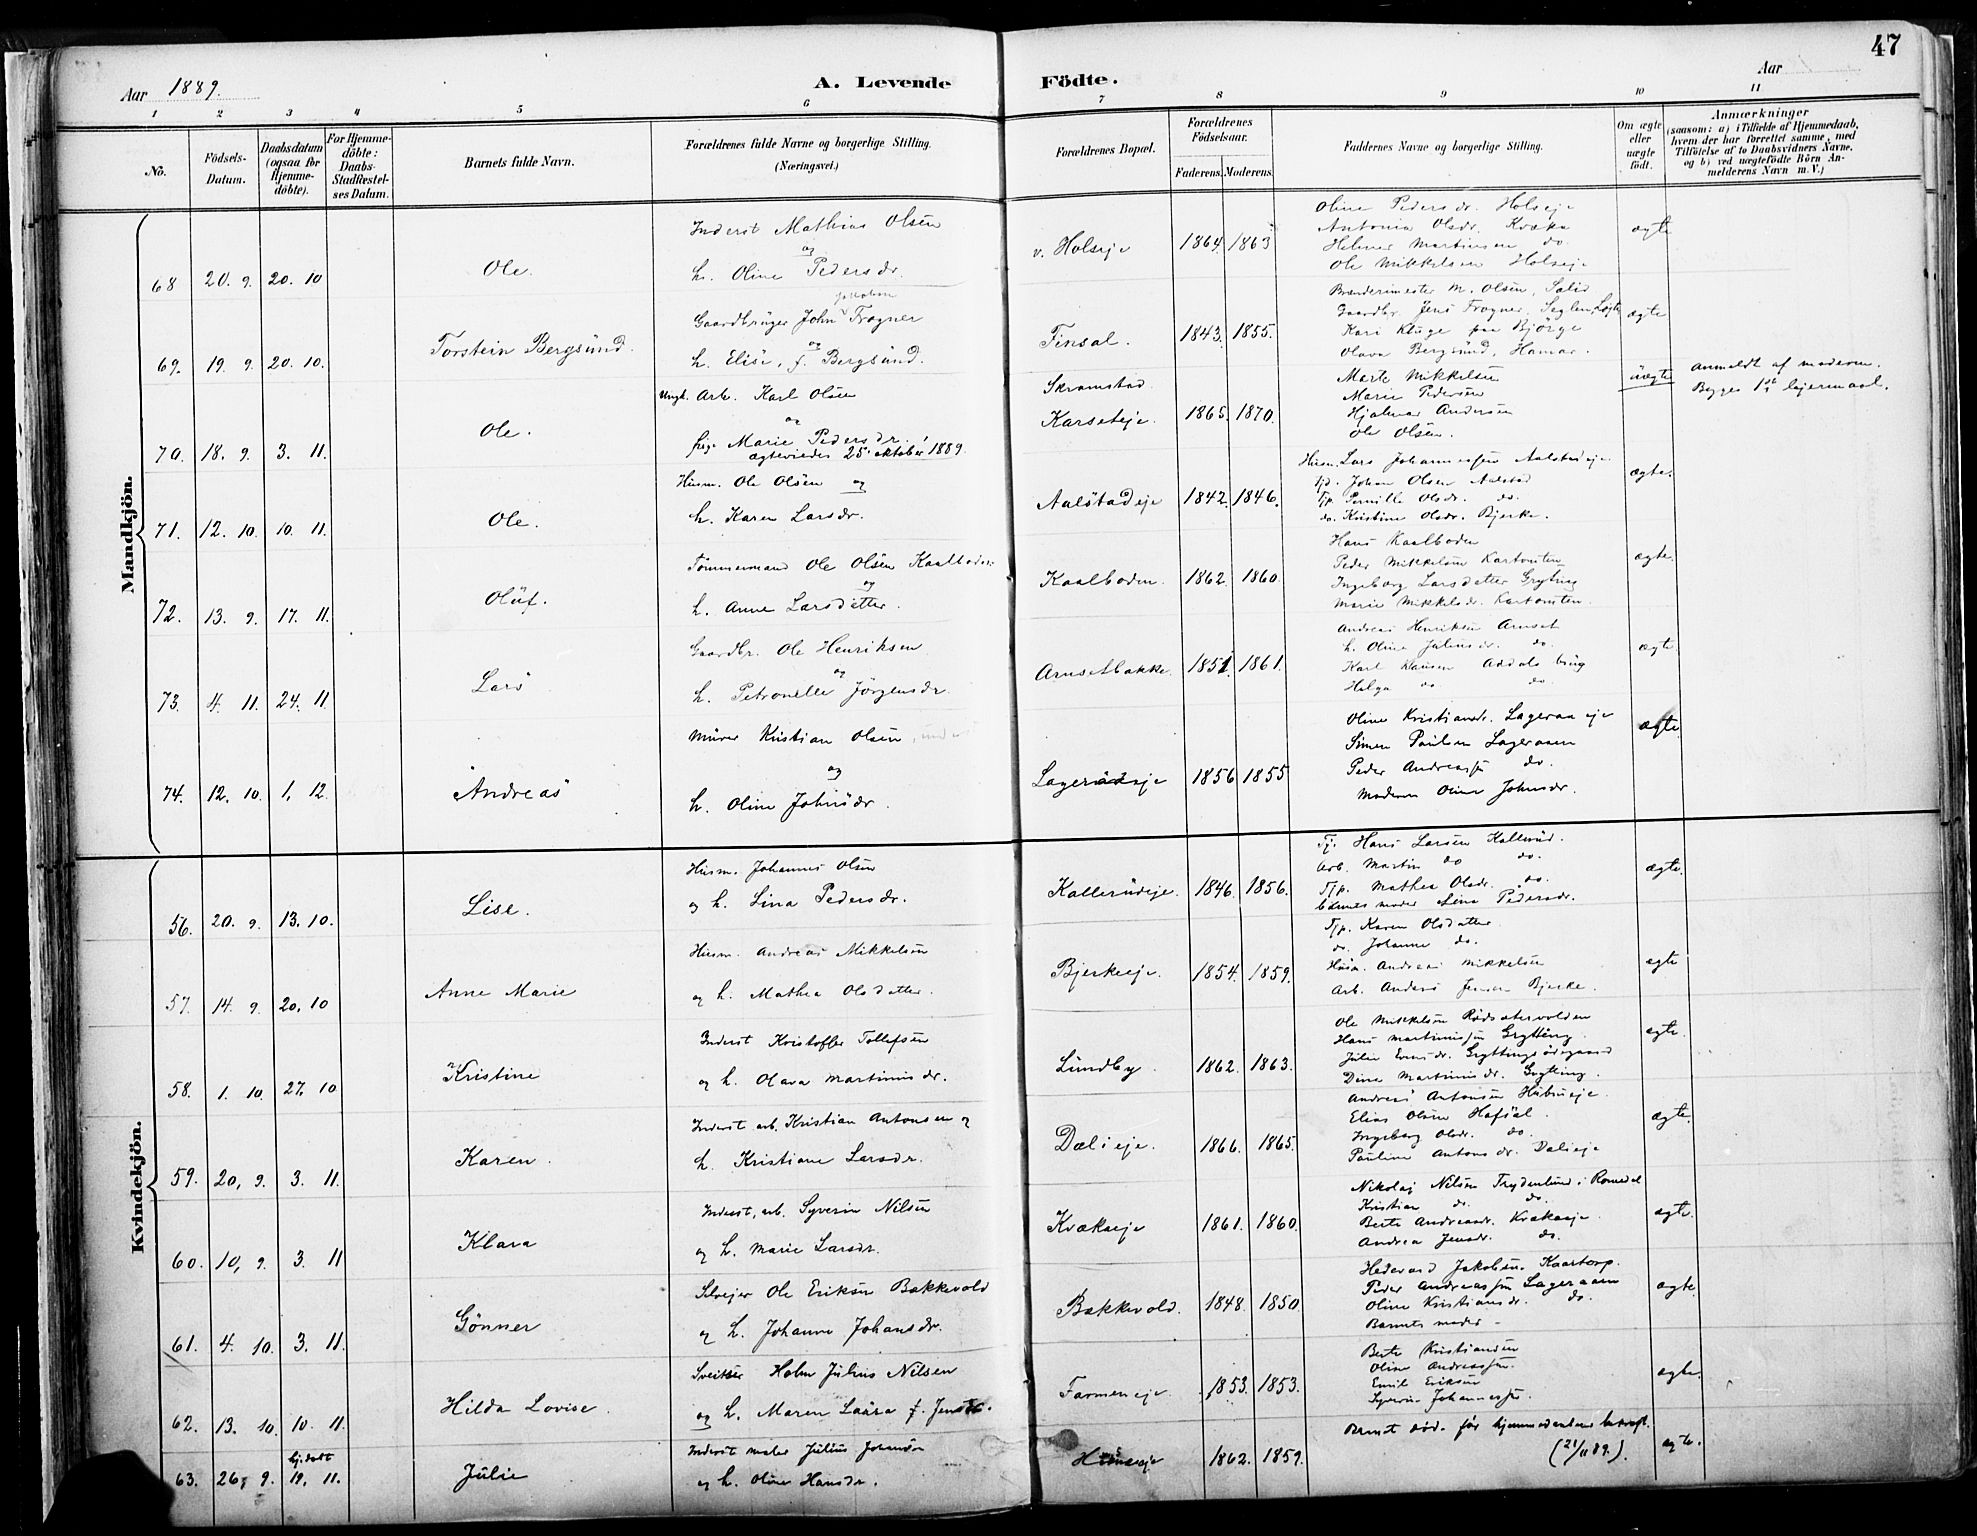 47
Aar 1889.
A. Levende Födte.
Aar
1 2 3 4 5 6 7 8 9 10 11
No.
Födsels-Datum.
Daabsdatum (ogsaa for Hjemme-döbte).
For Hjemme-döbte: Daabs-Stadfæstel-ses Datum.
Barnets fulde Navn.
Forældrenes fulde Navne og borgerlige Stilling. (Næringsvei.)
Forældrenes Bopæl.
Forældrenes Födselsaar.
Faderens. Moderens.
Faddernes Navne og borgerlige Stilling.
Om ægte eller uægte født.
Anmærkninger
(saasom: a) i Tilfælde af Hjemmedaab, hvem der har forrettet samme, med Tilföielse af to Daabsvidners Navne, og b) ved uægtefödte Börn Anmelderens Navn m. V.)
Mandkjön.
68 20. 9. 20. 10 Ole. Inderst Mathias Olsen og h. Oline Pedersdr. v. Holseje 1864. 1863 ægte
Oline Pedersdr. Holseje
Antonia Olsdr. Kvæka
Helmer Martinsen do.
Ole Mikkelsen Holseje
69. 19. 9. 20. 10. Torstein Bergsund. Gaardbruger John Jakobsen Frogner og h. Elise, f. Bergsund. Finsal. 1843. 1855. ægte
Brænderimester M. Olsen, Salid
Gaardbr. Jens Frogner, Seglem, Løjte
Kari Kluge paa Bjørge
Olava Bergsund, Hamar.
70. 18. 9. 3. 11. Ole. Ungk. Arb. Karl Olsen og pige Marie Pedersdr.! ægteviedes 25. oktober 1889. Skramstad Karseteje. 1865. 1870. uægte
Marte Mikkelsen
Marie Pedersen
Hjalmar Andersen
Ole Olsen.
Anmeldt af moderen.
Begges 1st lejermaal.
71. 12. 10. 10. 11. Ole. Husm. Ole Olsen og h. Karen Larsdr. Aalstadeje 1842. 1846. ægte.
Husm. Lars Johannessen Aalstadeje
Tjd. Johan Olsen Aalstad
Tjp. Pernille Olsdr. do.
do. Kristine Olsdr. Bjerke.
72. 13. 9. 17. 11. Oluf. Tömmermand Ole Olsen Kaalboden og h. Anne Larsdatter. Kaalboden. 1862. 1860. ægte.
Hans Kaalboden
Peder Mikkelsen Kartomten
Ingeborg Larsdatter Gryting
Marie Mikkelsdr. Kartomten.
73. 4. 11. 24. 11. Lars Gaardbr. Ole Henriksen og h. Petronelle Jörgensdr. Arnsetbakke. 1851. 1861. ægte
Andreas Henriksen Arnset
h. Oline Juliusdr. do.
Karl Klausen Aadals brug
Helga do. do.
74. 12. 10. 1. 12. Andreas Murer Kristian Olsen og h. Oline Johnsdr. Lageraaseje 1856 1855 ægte.
Oline Kristiansdr. Lageraaseje
Simen Paulsen Lageraasen
Peder Andreassen do.
Moderen Oline Johnsdr.
Kvindekjön.
56. 20. 9. 13. 10. Lise. Husm. Johannes Olsen og h. Lina Pedersdr. Kallerudeje. 1846. 1856. ægte.
Tj. Hans Larsen Kallerud.
Arb. Martin do do.
Tjp. Mathea Olsdr. do.
barnets moder Lina Pedersdr.
57. 14. 9. 20. 10 Anne Marie Husm. Andreas Mikkelsen og h. Mathea Olsdatter. Bjerkeeje. 1854. 1859. ægte
Tjp. Karen Olsdatter
do. Johanne do.
Husm. Andreas Mikkelsen
Arb. Anders Jensen Bjerke.
58. 1. 10. 27. 10 Kristine Inderst Kristoffer Tollefsen og h. Olava Martinusdr. Lundby 1862. 1863. ægte.
Ole Mikkelsen Rødsætervolden
Hans Martinussen Grytting.
Julie Evensdr. Gryttingsødegaard
Dina Martinusdr. Grytting.
59. 20. 9. 3. 11. Karen. Inderst arb. Kristian Antonsen og h. Kristiane Larsdr. Dælieje. 1866. 1865. ægte.
Andreas Antonsen Hubrueje.
Elias Olsen Hafsal.
Ingeborg Olsdr. do.
Pauline Antonsdr. Dælieje
60. 10. 9. 3. 11 Klara Inderst, arb. Syverin Nilsen og h. Marie Larsdr. Kvækaeje 1861. 1860. ægte.
Nikolaj Nilsen Trydenlund i Romedal
Kristian do. do.
Berte Andreasdr. Kvækaeje.
Andrea Jensdr. do.
61. 4. 10. 3. 11. Gönner Selvejer Ole Eriksen Bakkevold og h. Johanne Johansdr. Bakkevold. 1848. 1850. ægte.
Hedevard Jakobsen Kaartorp.
Peder Andreassen Lageraasen
Oline Kristiansdr. do.
Barnets moder -
62. 13. 10. 10. 11. Hilda Lovise. Sveitser Holm Julius Nilsen og h. Maren Laura f. Jensdr. Farmeneje. 1853. 1853. ægte.
Berte Kristiansen
Oline Andreassen.
Emil Eriksen
Syverin Johannessen.
63. 26. 9. hj. døbt 19. 11. Julie Inderst maler Julius Johansen og h. Oline Hansdr. 1862. 1859. ægte.
Barnet død før hjemmedaabens bekræft.
(21/11 89.).